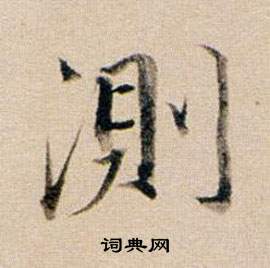 測
词典网